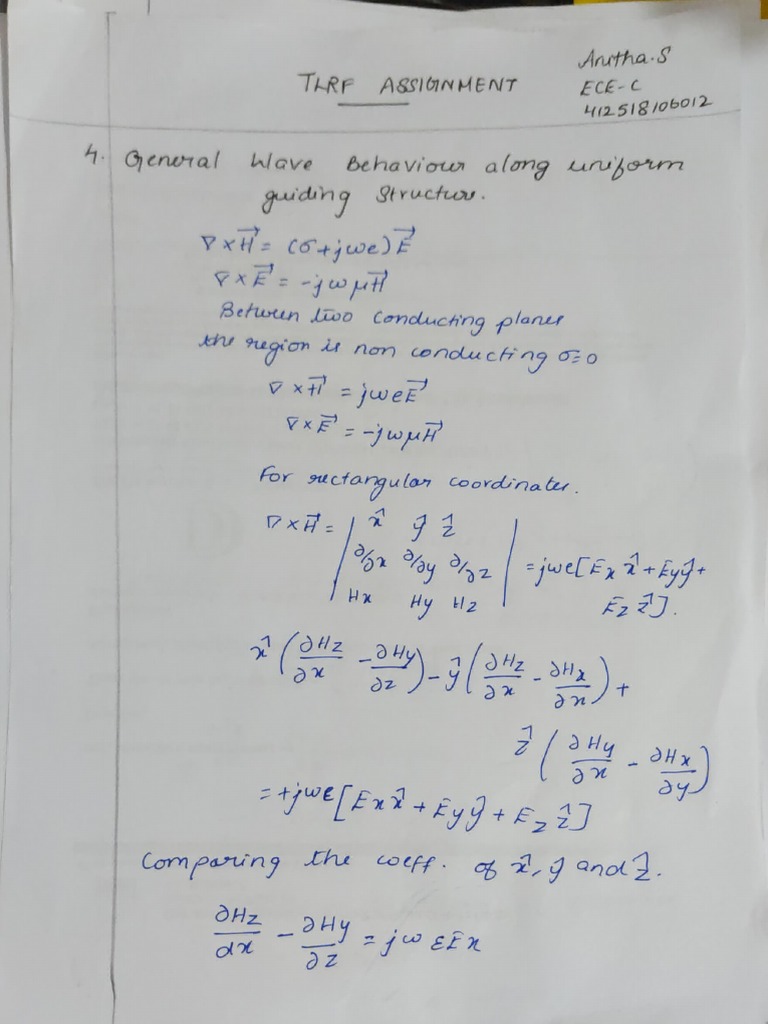 TLRF ASSIGNMENT
Anitha.S
ECE-C
412518106012
4. General Wave Behaviour along uniform
guiding structure.
∇×H⃗ = (σ+jωε)E⃗
∇×E⃗ = -jωμH⃗
Between two conducting planes
the region is non conducting σ=0
∇×H⃗ = jωεE⃗
∇×E⃗ = -jωμH⃗
For rectangular coordinates.
∇×H⃗ = | x̂ ŷ ẑ |
| ∂/∂x ∂/∂y ∂/∂z | = jωε[Ex x̂ + Ey ŷ +
| Hx Hy Hz | Ez ẑ].
x̂ (∂Hz/∂x - ∂Hy/∂z) - ŷ (∂Hz/∂x - ∂Hx/∂x) +
ẑ (∂Hy/∂x - ∂Hx/∂y)
= +jωε[Ex x̂ + Ey ŷ + Ez ẑ]
Comparing the coeff. of x̂, ŷ and ẑ.
∂Hz/dx - ∂Hy/∂z = jωεEx